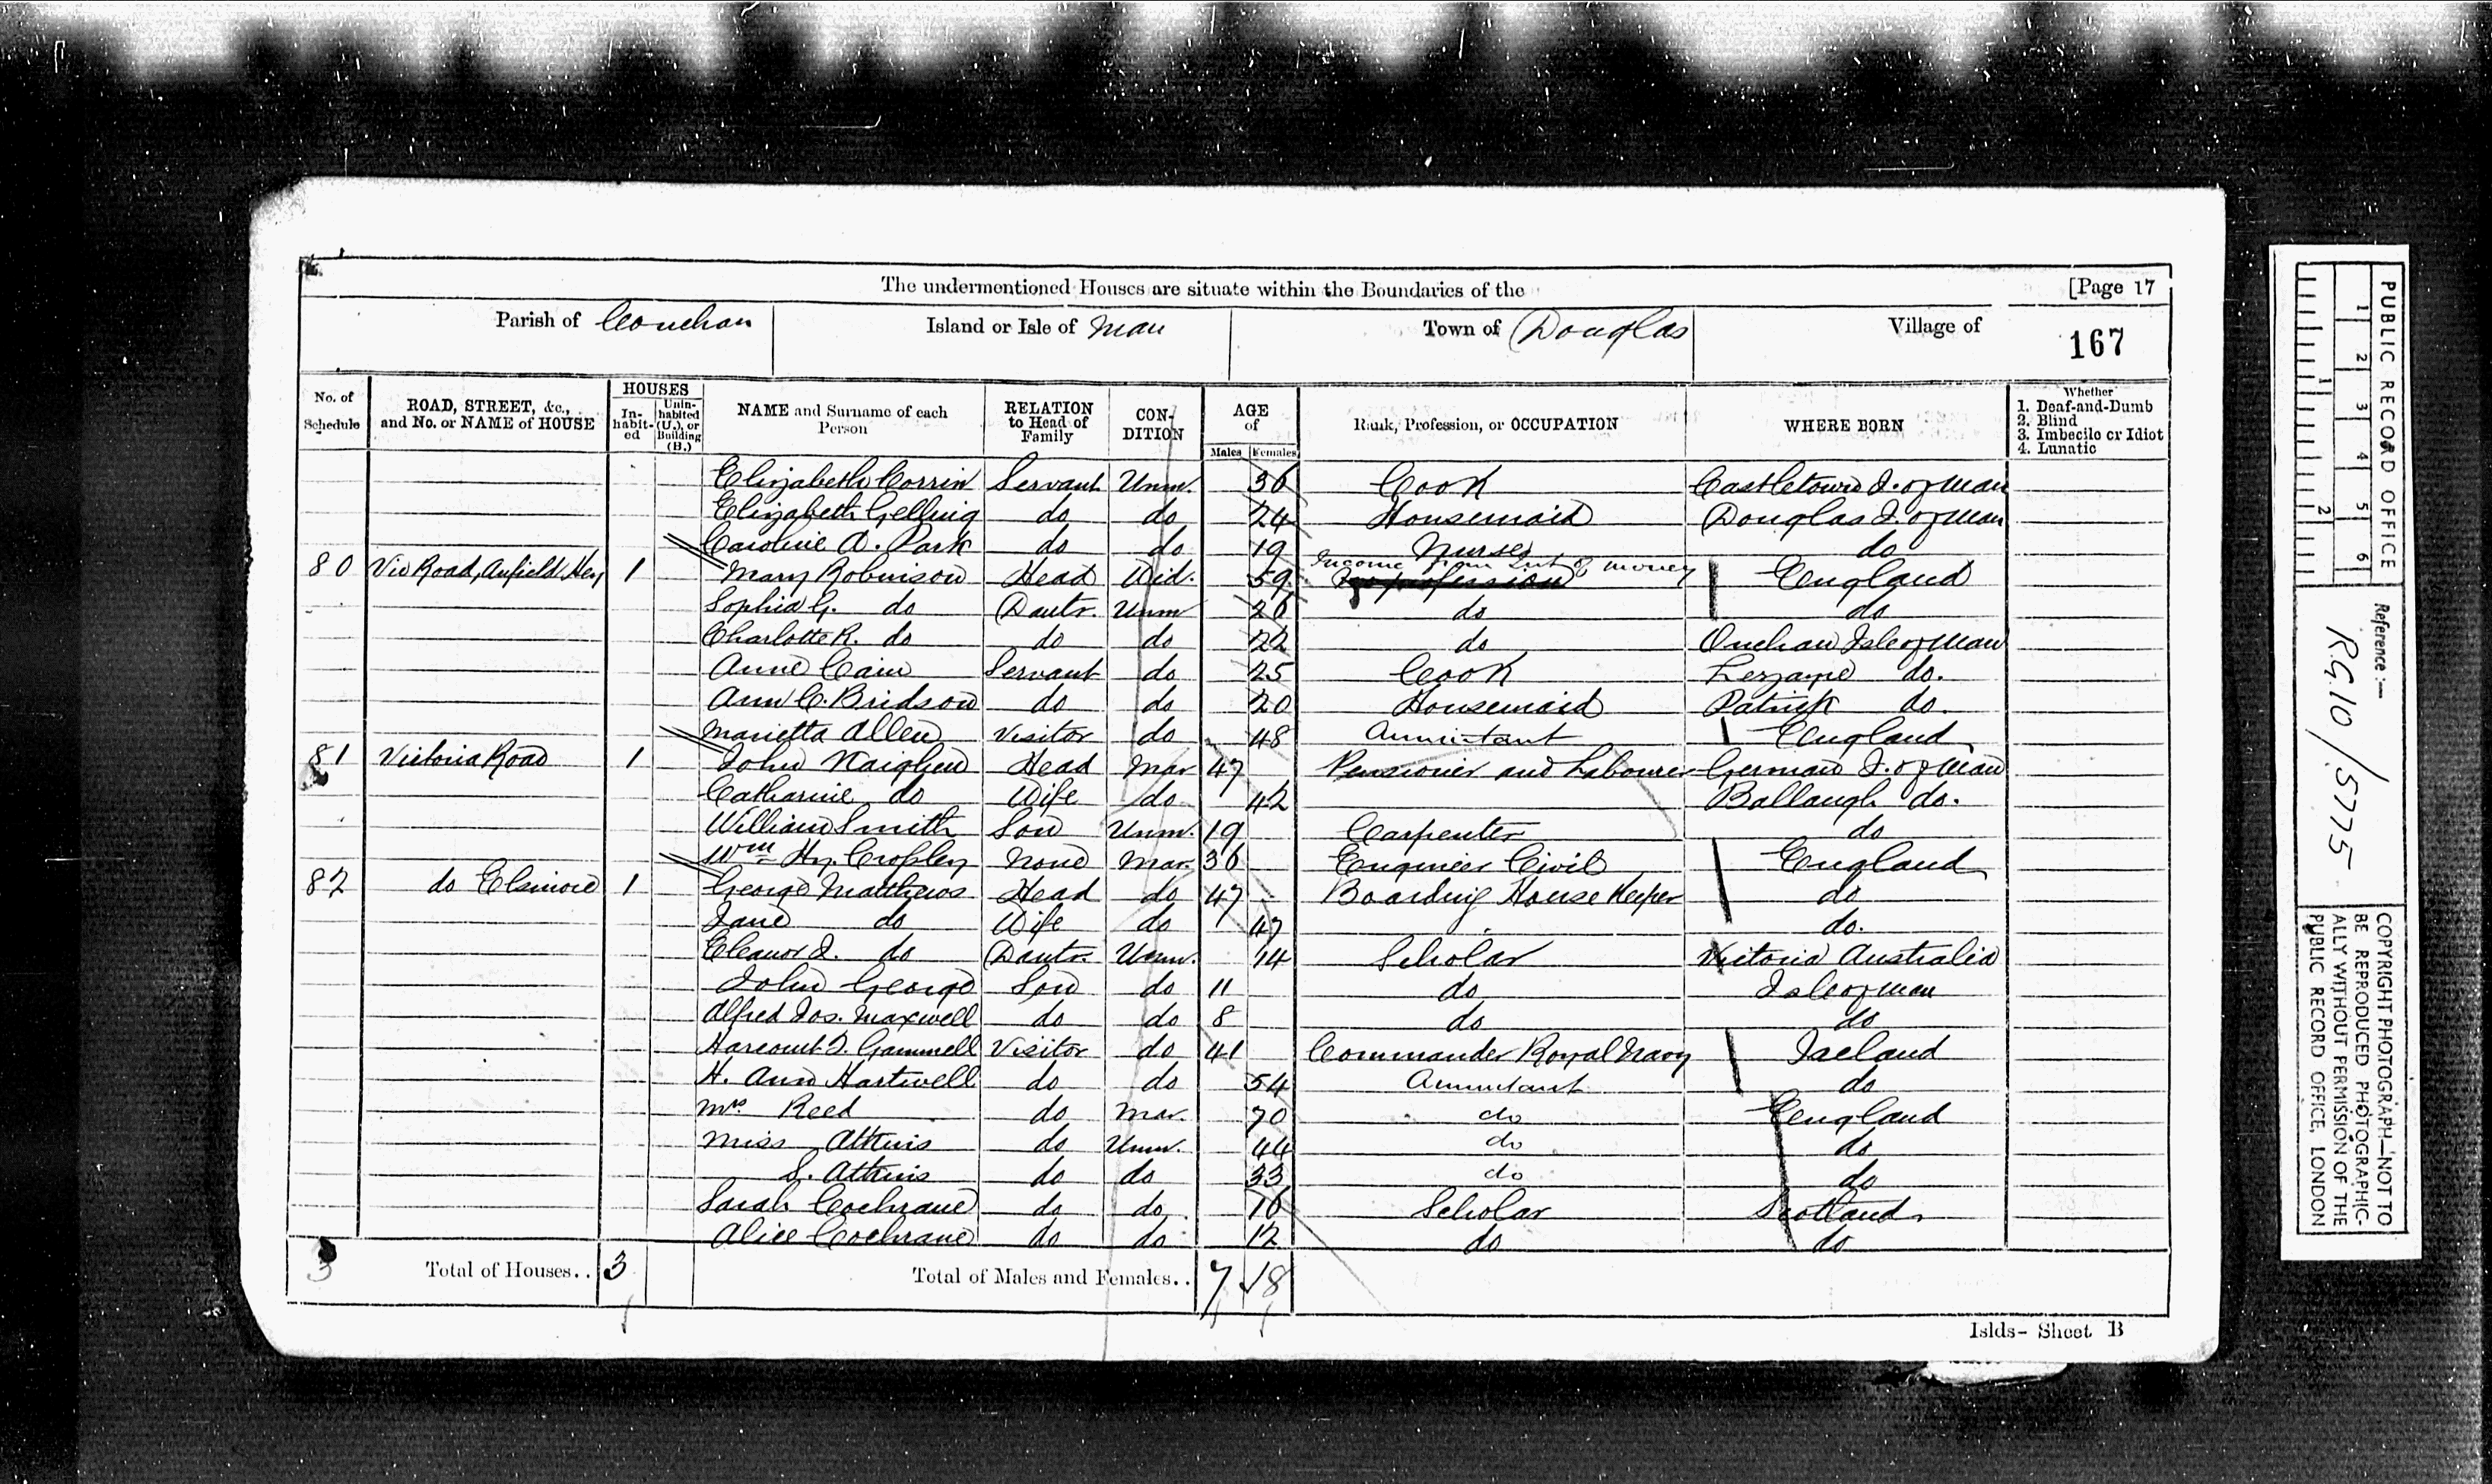 The undermentioned Houses are situate within the Boundaries of the [Page 17
Parish of Conchan Island or Isle of Man Town of Douglas Village of 167
No. of Schedule ROAD, STREET, &c., and No. or NAME of HOUSE HOUSES In-habit-ed Unin-habited (U.), or Building (B.) NAME and Surname of each Person RELATION to Head of Family CON-DITION AGE of Males Females Rank, Profession, or OCCUPATION WHERE BORN Whether 1. Deaf-and-Dumb 2. Blind 3. Imbecile or Idiot 4. Lunatic
Elizabeth Corrin Servant Unm. 36 Cook Castletown I. of Man
Elizabeth Gelling do do 24 Housemaid Douglas I. of Man
Caroline A. Park do do 19 Nurse do
Income from Int of money
80 Vic Road, Anfield Hey 1 Mary Robinson Head Wid. 59 No profession England
Sophia G. do Dautr. Unm 26 do do
Charlotte R. do do do 22 do Onchan Isle of Man
Anne Cain Servant do 25 Cook Lezayre do.
Ann C. Bridson do do 20 Housemaid Patrick do.
Marietta Allen Visitor do 48 Annuitant England
81 Victoria Road 1 John Kaighen Head Mar 47 Pensioner and Labourer German I. of Man
Catharine do Wife do 42 Ballaugh do.
William Smith Son Unm. 19 Carpenter do
Wm Hy. Cropley None Mar. 36 Engineer Civil England
82 do Elsinore 1 George Matthews Head do 47 Boarding House Keeper do
Jane do Wife do 47 do.
Eleanor J. do Dautr. Unm. 14 Scholar Victoria Australia
John George Son do 11 do Isle of Man
Alfred Jos. Maxwell do do 8 do do
Harcourt T. Gammell Visitor do 41 Commander Royal Navy Ireland
H. Ann Hartwell do do 54 Annuitant do
Mrs Reed do Mar. 70 do England
Miss Atkins do Unm. 44 do do
S. Atkins do do 33 do do
Sarah Cochrane do do 16 Scholar Scotland
Alice Cochrane do do 12 do do
3 Total of Houses.. 3 Total of Males and Females.. 7 18
Islds- Sheet B
PUBLIC RECORD OFFICE
1 2 3 4 5 6
1 2
Reference:—
RG10/5775
COPYRIGHT PHOTOGRAPH—NOT TO BE REPRODUCED PHOTOGRAPHIC-ALLY WITHOUT PERMISSION OF THE PUBLIC RECORD OFFICE, LONDON